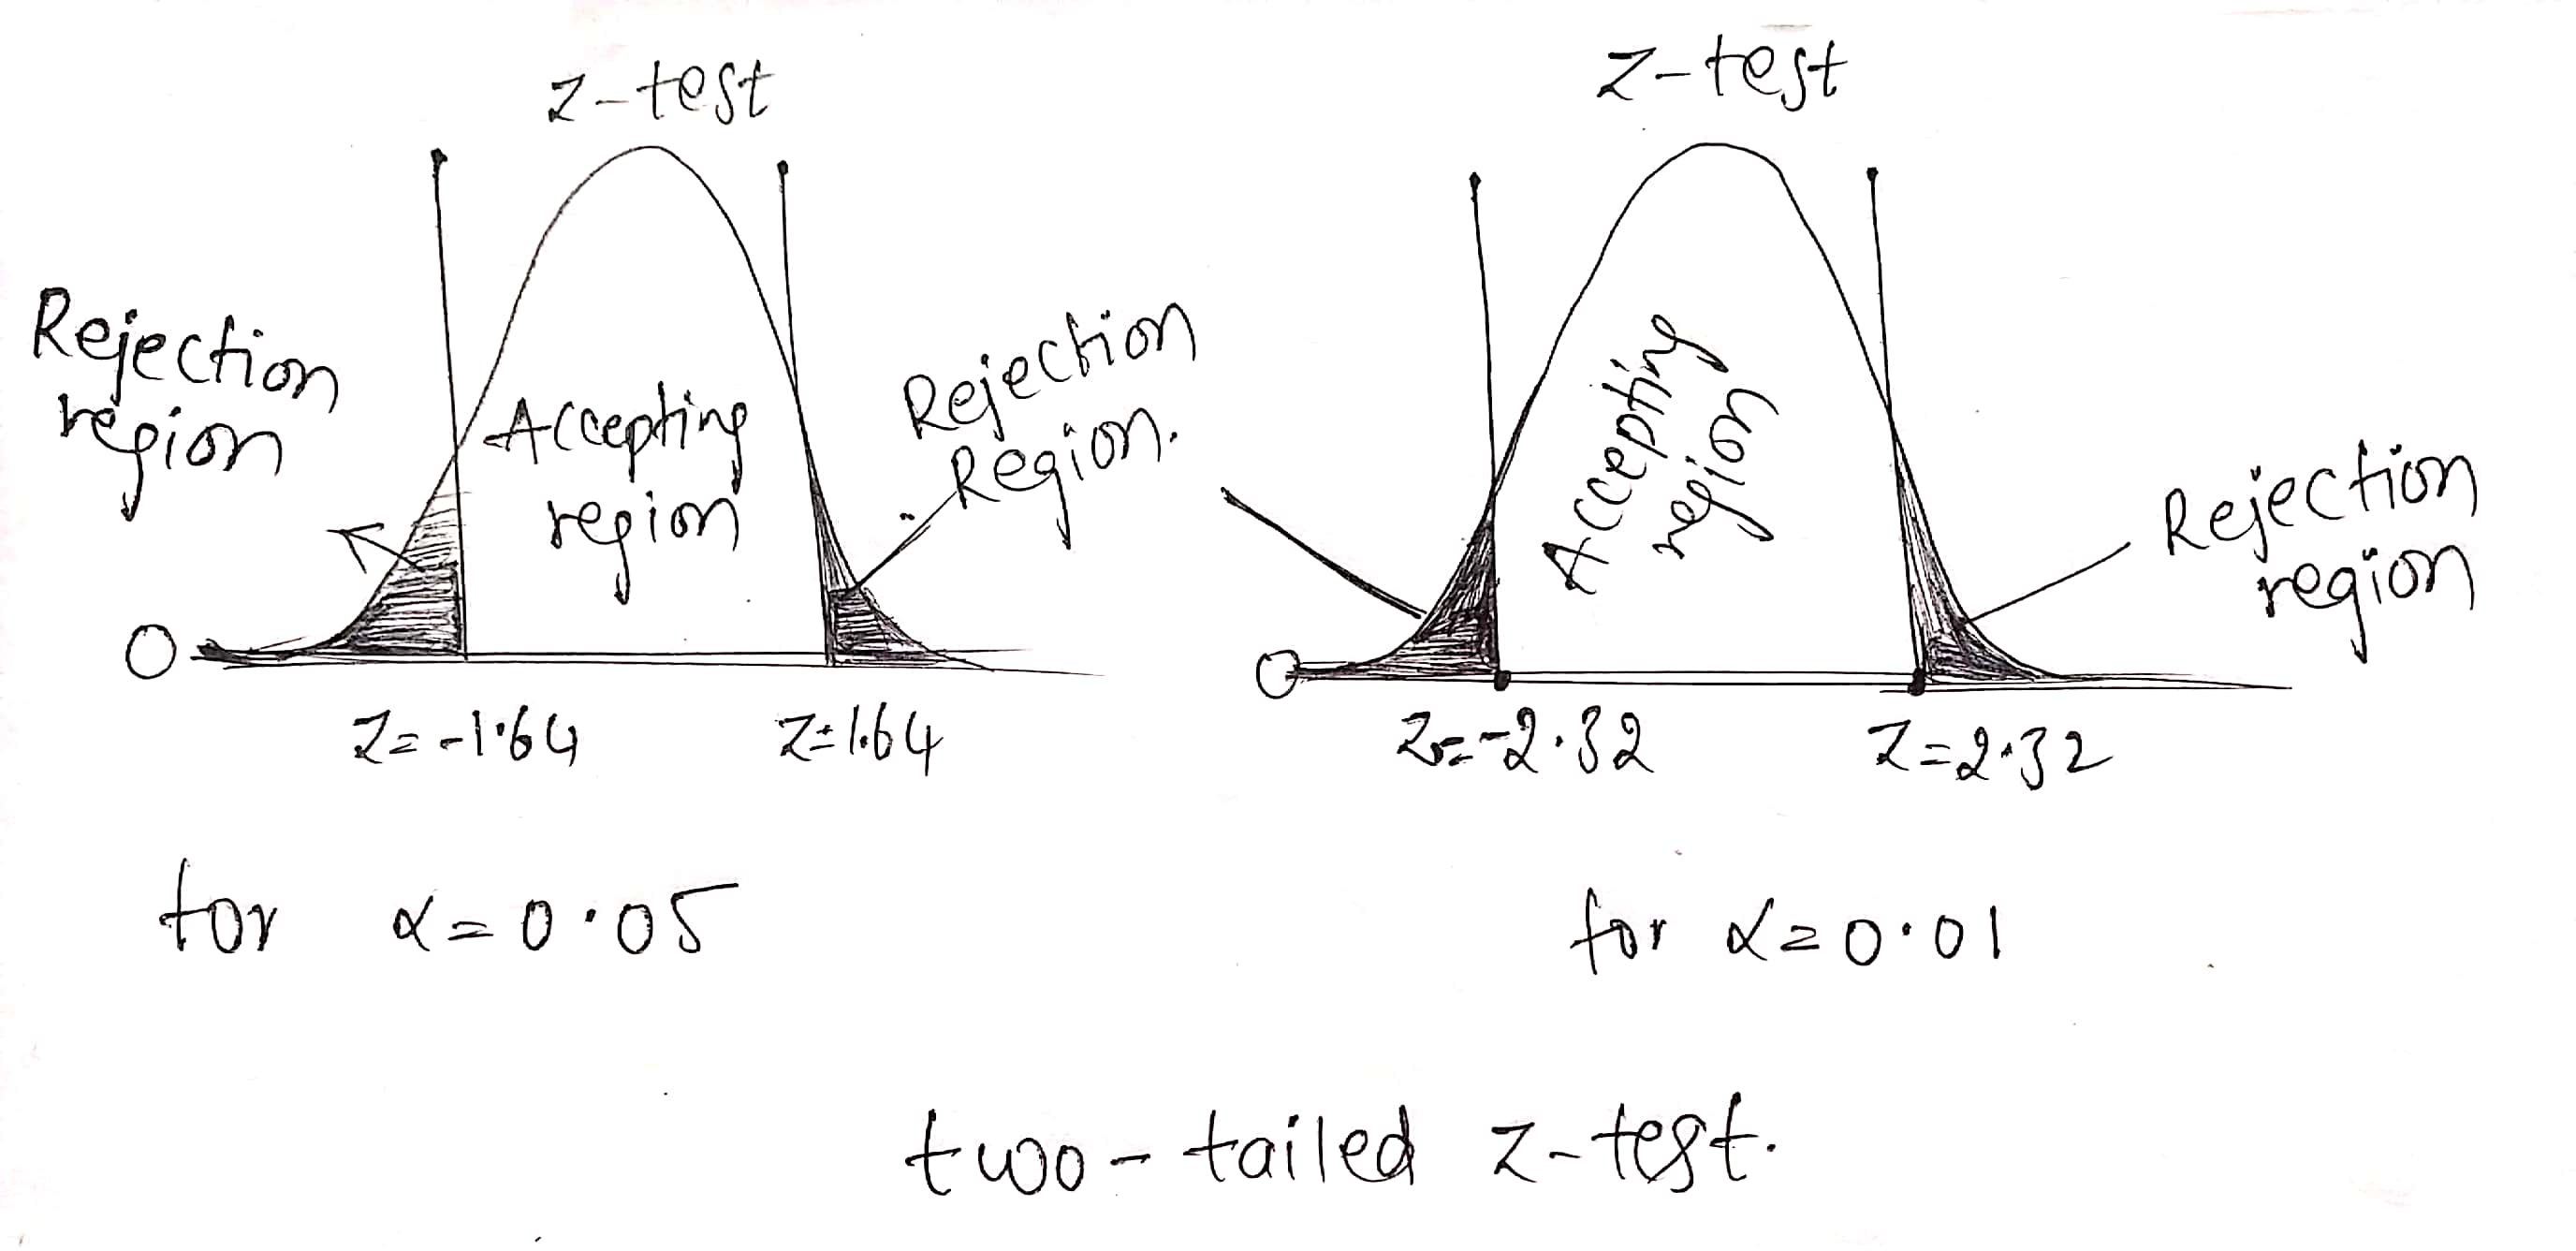 z-test
Rejection
region
Accepting
region
Rejection
Region.
Z=-1.64
Z=1.64
for α=0.05
z-test
Accepting
region
Rejection
region
Z=-2.32
Z=2.32
for α=0.01
two-tailed z-test.